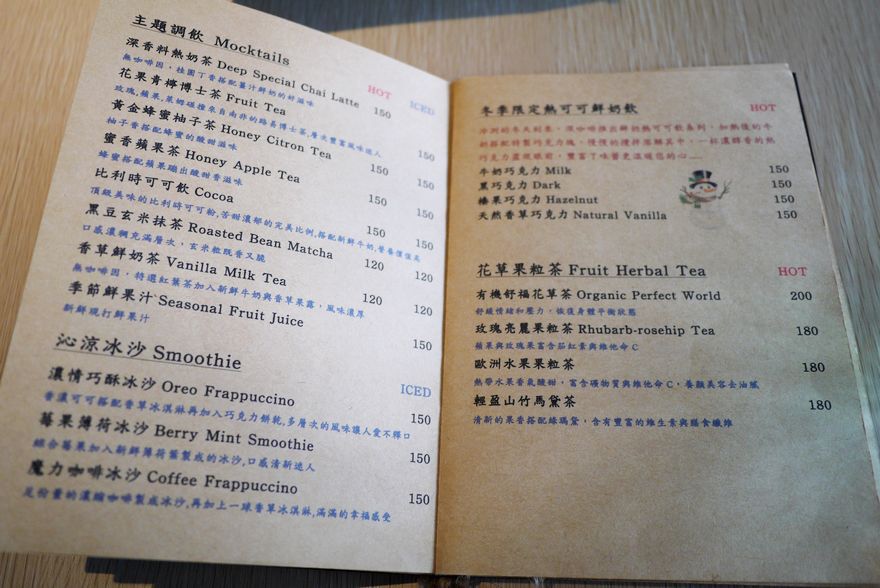 主題調飲 Mocktails
HOT ICED
深香料熱奶茶 Deep Special Chai Latte 150
無咖啡因，桂圓丁香搭配薑汁鮮奶的好滋味
花果青檸博士茶 Fruit Tea 150
玫瑰,蘋果,萊姆碰撞來自南非的路易博士茶,層次豐富風味迷人
黃金蜂蜜柚子茶 Honey Citron Tea 150 150
柚子香搭配蜂蜜的酸甜滋味
蜜香蘋果茶 Honey Apple Tea 150 150
蜂蜜搭配蘋果蹦出酸甜香滋味
比利時可可飲 Cocoa 150 150
頂級美味的比利時可可粉,苦甜濃郁的完美比例,搭配新鮮牛奶,營養價值高
黑豆玄米抹茶 Roasted Bean Matcha 120 120
口感濃稠充滿層次，玄米粒既香又脆
香草鮮奶茶 Vanilla Milk Tea 120 120
無咖啡因，特選紅葉茶加入新鮮牛奶與香草果露，風味濃厚
季節鮮果汁 Seasonal Fruit Juice 150
新鮮現打鮮果汁
沁涼冰沙 Smoothie
ICED
濃情巧酥冰沙 Oreo Frappuccino 150
香濃可可搭配香草冰淇淋再加入巧克力餅乾,多層次的風味讓人愛不釋口
莓果薄荷冰沙 Berry Mint Smoothie 150
綜合莓果加入新鮮薄荷葉製成的冰沙,口感清新迷人
魔力咖啡冰沙 Coffee Frappuccino 150
足份量的濃縮咖啡製成冰沙,再加上一球香草冰淇淋,滿滿的幸福感受
冬季限定熱可可鮮奶飲 HOT
冷冽的冬天到來，深咖啡推出鮮奶熱可可飲系列，加熱後的牛
奶搭配特製巧克力塊，慢慢的攪拌溶解其中，一杯濃醇香的熱
巧克力盡現眼前，豐富了味蕾更溫暖您的心……
牛奶巧克力 Milk 150
黑巧克力 Dark 150
榛果巧克力 Hazelnut 150
天然香草巧克力 Natural Vanilla 150
花草果粒茶 Fruit Herbal Tea HOT
有機舒福花草茶 Organic Perfect World 200
舒緩情緒和壓力，恢復身體平衡狀態
玫瑰亮麗果粒茶 Rhubarb-rosehip Tea 180
蘋果與玫瑰果富含茄紅素與維他命C
歐洲水果果粒茶 180
熱帶水果香氣酸甜，富含礦物質與維他命C，養顏美容去油膩
輕盈山竹馬黛茶 180
清新的果香搭配綠瑪黛，含有豐富的維生素與膳食纖維